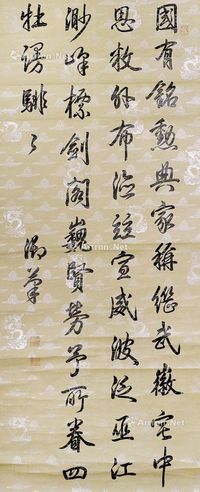 國有銘勳典家稱繼武徽中
恩敷外布宣威波泛巫江
渺峰標劍閣巍賢勞予所眷四
牡騑々
御筆
Artron.Net